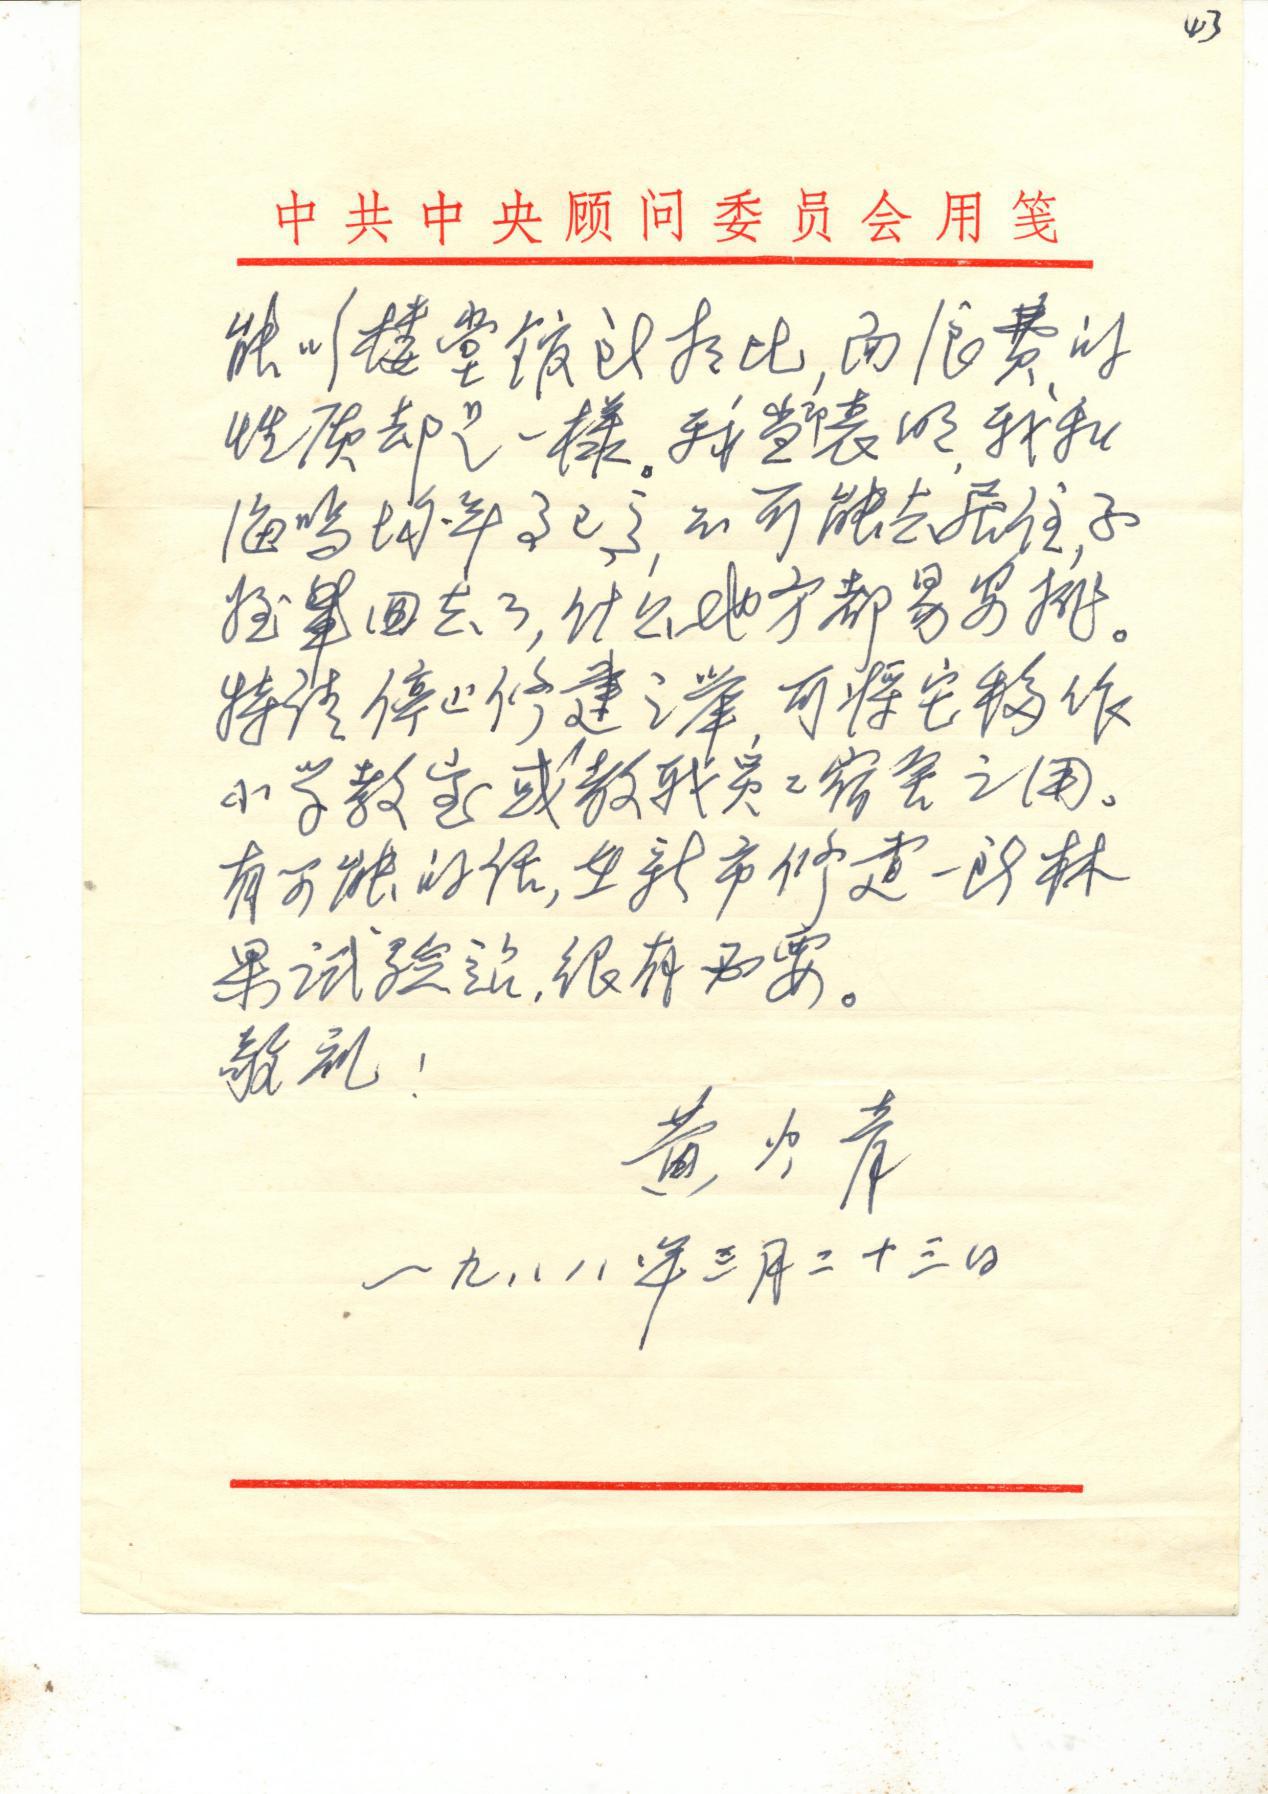 43
中共中央顾问委员会用笺
能以楼堂馆所相比,而浪费的
性质却是一样。我当表明,我和
海鸣均年高已,不可能去居住,子
侄辈回去了,什么地方都易安排。
特请停止修建之举,可将宅移作
小学教室或教职员工宿舍之用。
有可能的话,在新市修建一所林
果试验站,很有必要。
敬礼!
黄火青
一九八八年三月二十三日